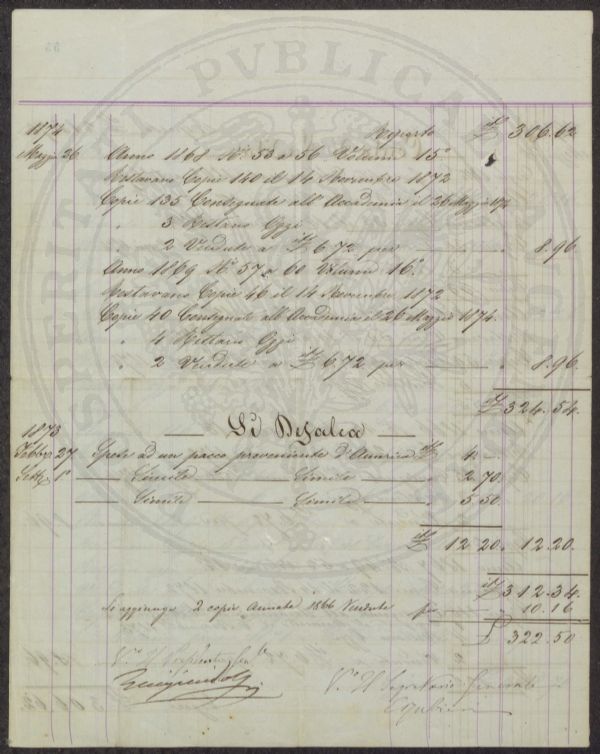 1874 Reporto £ 306.62
Maggio 26 Anno 1868 Ni. 53 a 56 Volume 15º
Restavano Copie 140 il 14 Novembre 1872
Copie 135 Consegnate all' Accademia il 26 Maggio 1874
" 3 Restano Oggi
" 2 Vendute a £ 6.72 per 8.96
Anno 1869 Ni. 57 a 60 Volume 16º
Restavano Copie 46 il 14 Novembre 1872
Copie 40 Consegnate all' Accademia il 26 Maggio 1874
" 4 Restano Oggi
" 2 Vendute a £ 6.72 per 8.96
£ 324.54
Si Defalca
1873
Febbrº 27 Spese ad un pacco proveniente d'America £ 4 —
Sett. 1º Simile Simile 2.70
Simile Simile 5.50
£ 12 20 12.20
£ 312.34
Si aggiunge 2 copie Annata 1866 Vendute p 10.16
£ 322.50
Vº Il
Vº Il Segretario Generale